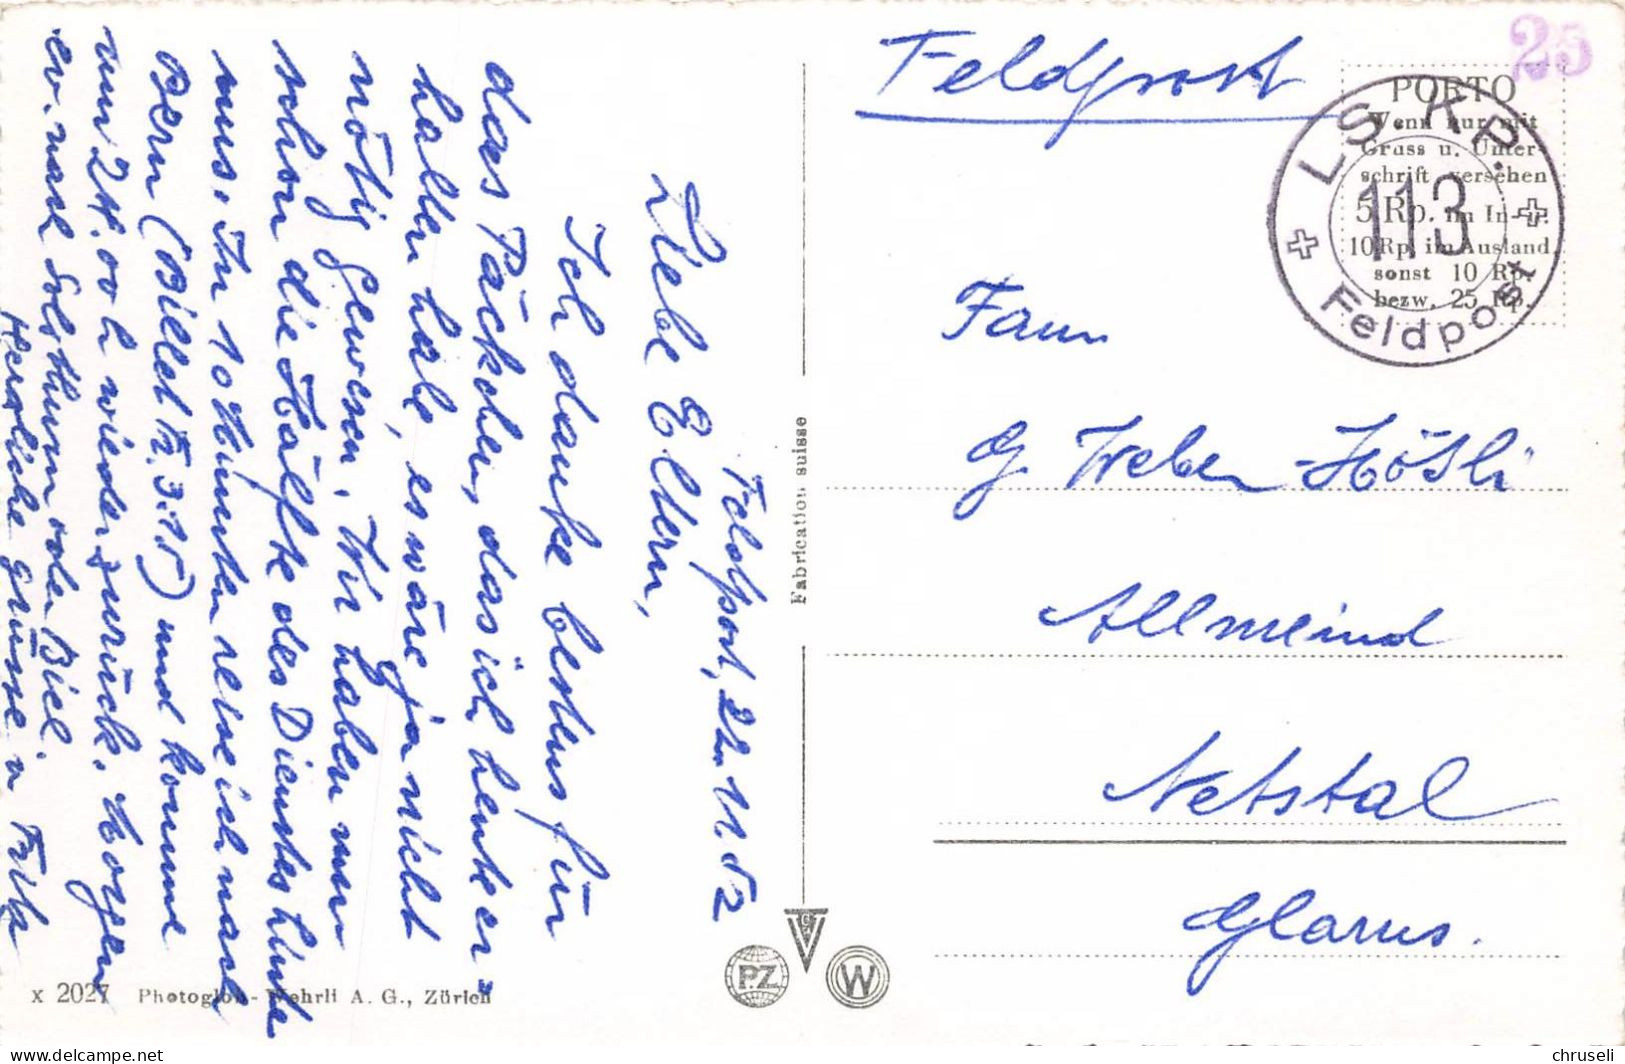 Feldpost, 22. 11. 52
Liebe Eltern,
Ich danke bestens für
das Päckchen, das ich heute er=
halten habe, es wäre ja nicht
nötig gewesen. Wir haben nun
schon die Hälfte des Dienstes hinter
uns. In 10 Minuten reise ich nach
Bern (Billet Fr. 3.15) und komme
um 24.00 h wieder zurück. Morgen
ev. nach Solothurn oder Biel.
Herzliche Grüsse v.
x 2027 Photoglob-Wehrli A. G., Zürich
Fabrication suisse
P.Z.
W
Feldpost
25
PORTO
Wenn nur mit
Gruss u. Unter-
schrift versehen
5 Rp. im In- u.
10 Rp. im Ausland
sonst 10 Rp.
bezw. 25 Rp.
LS. KP.
113
Feldpost
Fam.
G. Weber-Hösli
Allmeind
Netstal
Glarus.
chruseli
delcampe.net